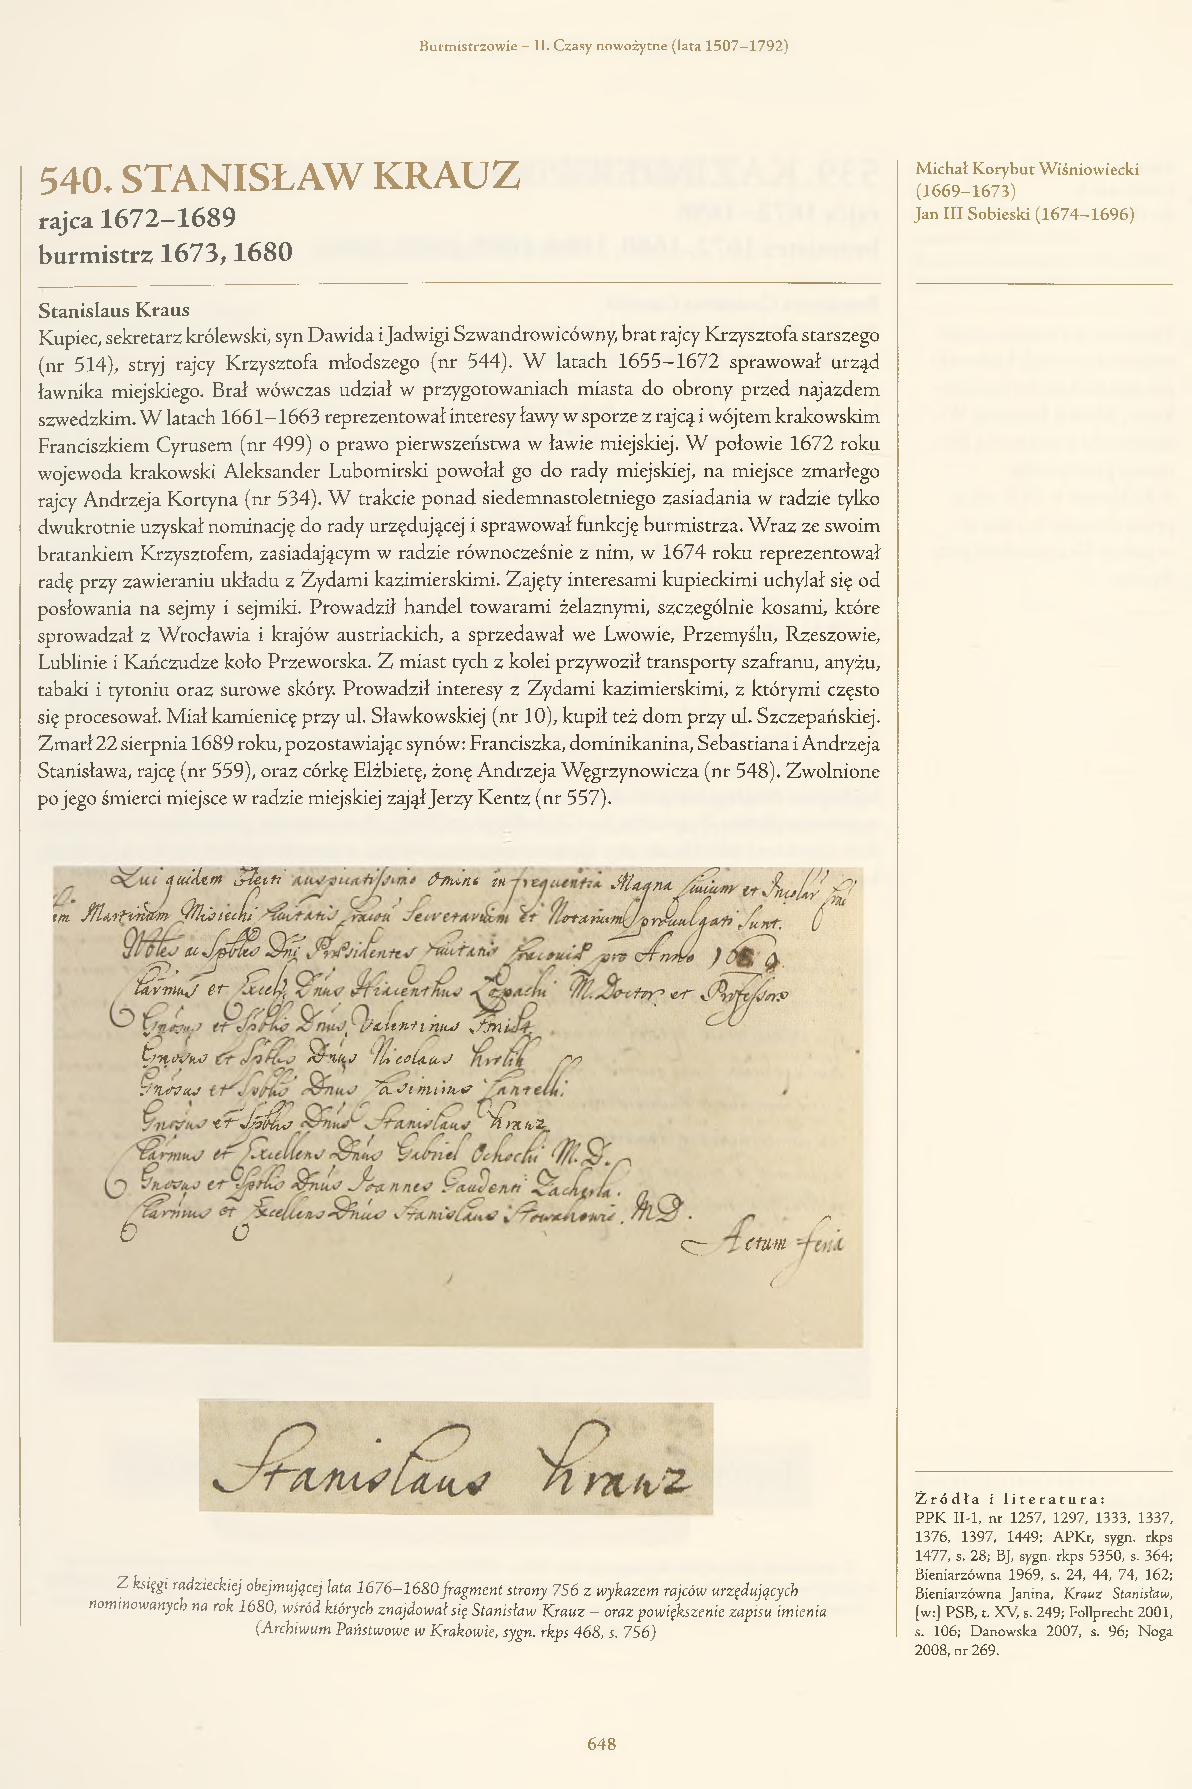 Burmistrzowie – II. Czasy nowożytne (lata 1507–1792)
540. STANISŁAW KRAUZ
rajca 1672–1689
burmistrz 1673, 1680
Michał Korybut Wiśniowiecki
(1669–1673)
Jan III Sobieski (1674–1696)
Stanislaus Kraus
Kupiec, sekretarz królewski, syn Dawida i Jadwigi Szwandrowicówny, brat rajcy Krzysztofa starszego
(nr 514), stryj rajcy Krzysztofa młodszego (nr 544). W latach 1655–1672 sprawował urząd
ławnika miejskiego. Brał wówczas udział w przygotowaniach miasta do obrony przed najazdem
szwedzkim. W latach 1661–1663 reprezentował interesy ławy w sporze z rajcą i wójtem krakowskim
Franciszkiem Cyrusem (nr 499) o prawo pierwszeństwa w ławie miejskiej. W połowie 1672 roku
wojewoda krakowski Aleksander Lubomirski powołał go do rady miejskiej, na miejsce zmarłego
rajcy Andrzeja Kortyna (nr 534). W trakcie ponad siedemnastoletniego zasiadania w radzie tylko
dwukrotnie uzyskał nominację do rady urzędującej i sprawował funkcję burmistrza. Wraz ze swoim
bratankiem Krzysztofem, zasiadającym w radzie równocześnie z nim, w 1674 roku reprezentował
radę przy zawieraniu układu z Żydami kazimierskimi. Zajęty interesami kupieckimi uchylał się od
posłowania na sejmy i sejmiki. Prowadził handel towarami żelaznymi, szczególnie kosami, które
sprowadzał z Wrocławia i krajów austriackich, a sprzedawał we Lwowie, Przemyślu, Rzeszowie,
Lublinie i Kańczudze koło Przeworska. Z miast tych z kolei przywoził transporty szafranu, anyżu,
tabaki i tytoniu oraz surowe skóry. Prowadził interesy z Żydami kazimierskimi, z którymi często
się procesował. Miał kamienicę przy ul. Sławkowskiej (nr 10), kupił też dom przy ul. Szczepańskiej.
Zmarł 22 sierpnia 1689 roku, pozostawiając synów: Franciszka, dominikanina, Sebastiana i Andrzeja
Stanisława, rajcę (nr 559), oraz córkę Elżbietę, żonę Andrzeja Węgrzynowicza (nr 548). Zwolnione
po jego śmierci miejsce w radzie miejskiej zajął Jerzy Kentz (nr 557).
quidem Electi auspicatissimo Omine in frequentia Magna Civium et
Martinum Misiecki Civitatis Secretarium et Notarium provulgati sunt.
Dni Praesidentes Civitatis pro Anno
et Dnus Hiacinthus Lopacki M. Doctor et Professor
et Dnus Valentinus
et Dnus Nicolaus
et Dnus Casimirus
et Dnus Stanislaus Krauz
et Excellens Dnus Gabriel Ochocki M. D.
et Dnus Joannes Gaudenti Zacherla.
et Excellens Dnus Stanislaus M D.
Actum feria
Stanislaus Krauz
Z księgi radzieckiej obejmującej lata 1676–1680 fragment strony 756 z wykazem rajców urzędujących
nominowanych na rok 1680, wśród których znajdował się Stanisław Krauz – oraz powiększenie zapisu imienia
(Archiwum Państwowe w Krakowie, sygn. rkps 468, s. 756)
Źródła i literatura:
PPK II-1, nr 1257, 1297, 1333, 1337,
1376, 1397, 1449; APKr, sygn. rkps
1477, s. 28; BJ, sygn. rkps 5350, s. 364;
Bieniarzówna 1969, s. 24, 44, 74, 162;
Bieniarzówna Janina, Krauz Stanisław,
[w:] PSB, t. XV, s. 249; Follprecht 2001,
s. 106; Danowska 2007, s. 96; Noga
2008, nr 269.
648